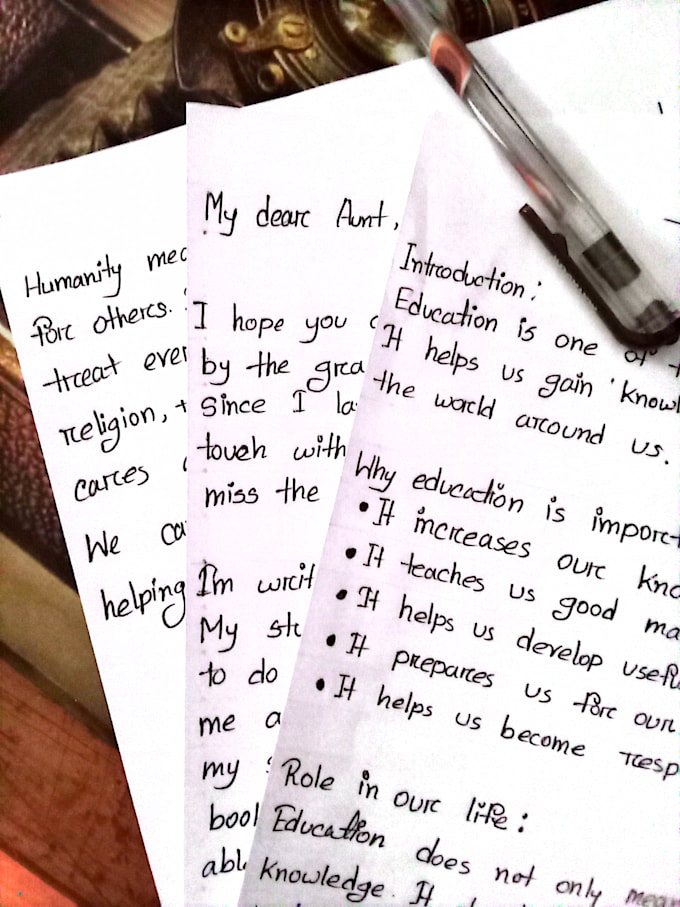 Humanity mea
for others.
treat ever
religion, t
cares
We ca
helping
My dear Aunt,
I hope you
by the gra
Since I la
touch with
miss the
I'm writ
My stu
to do
me a
my
bool
able
Introduction:
Education is one of t
It helps us gain 'Knowl
the world around us.
Why education is import
• It increases our kno
• It teaches us good ma
• It helps us develop useful
• It prepares us for our
• It helps us become resp
Role in our life:
Education does not only mean
Knowledge. It